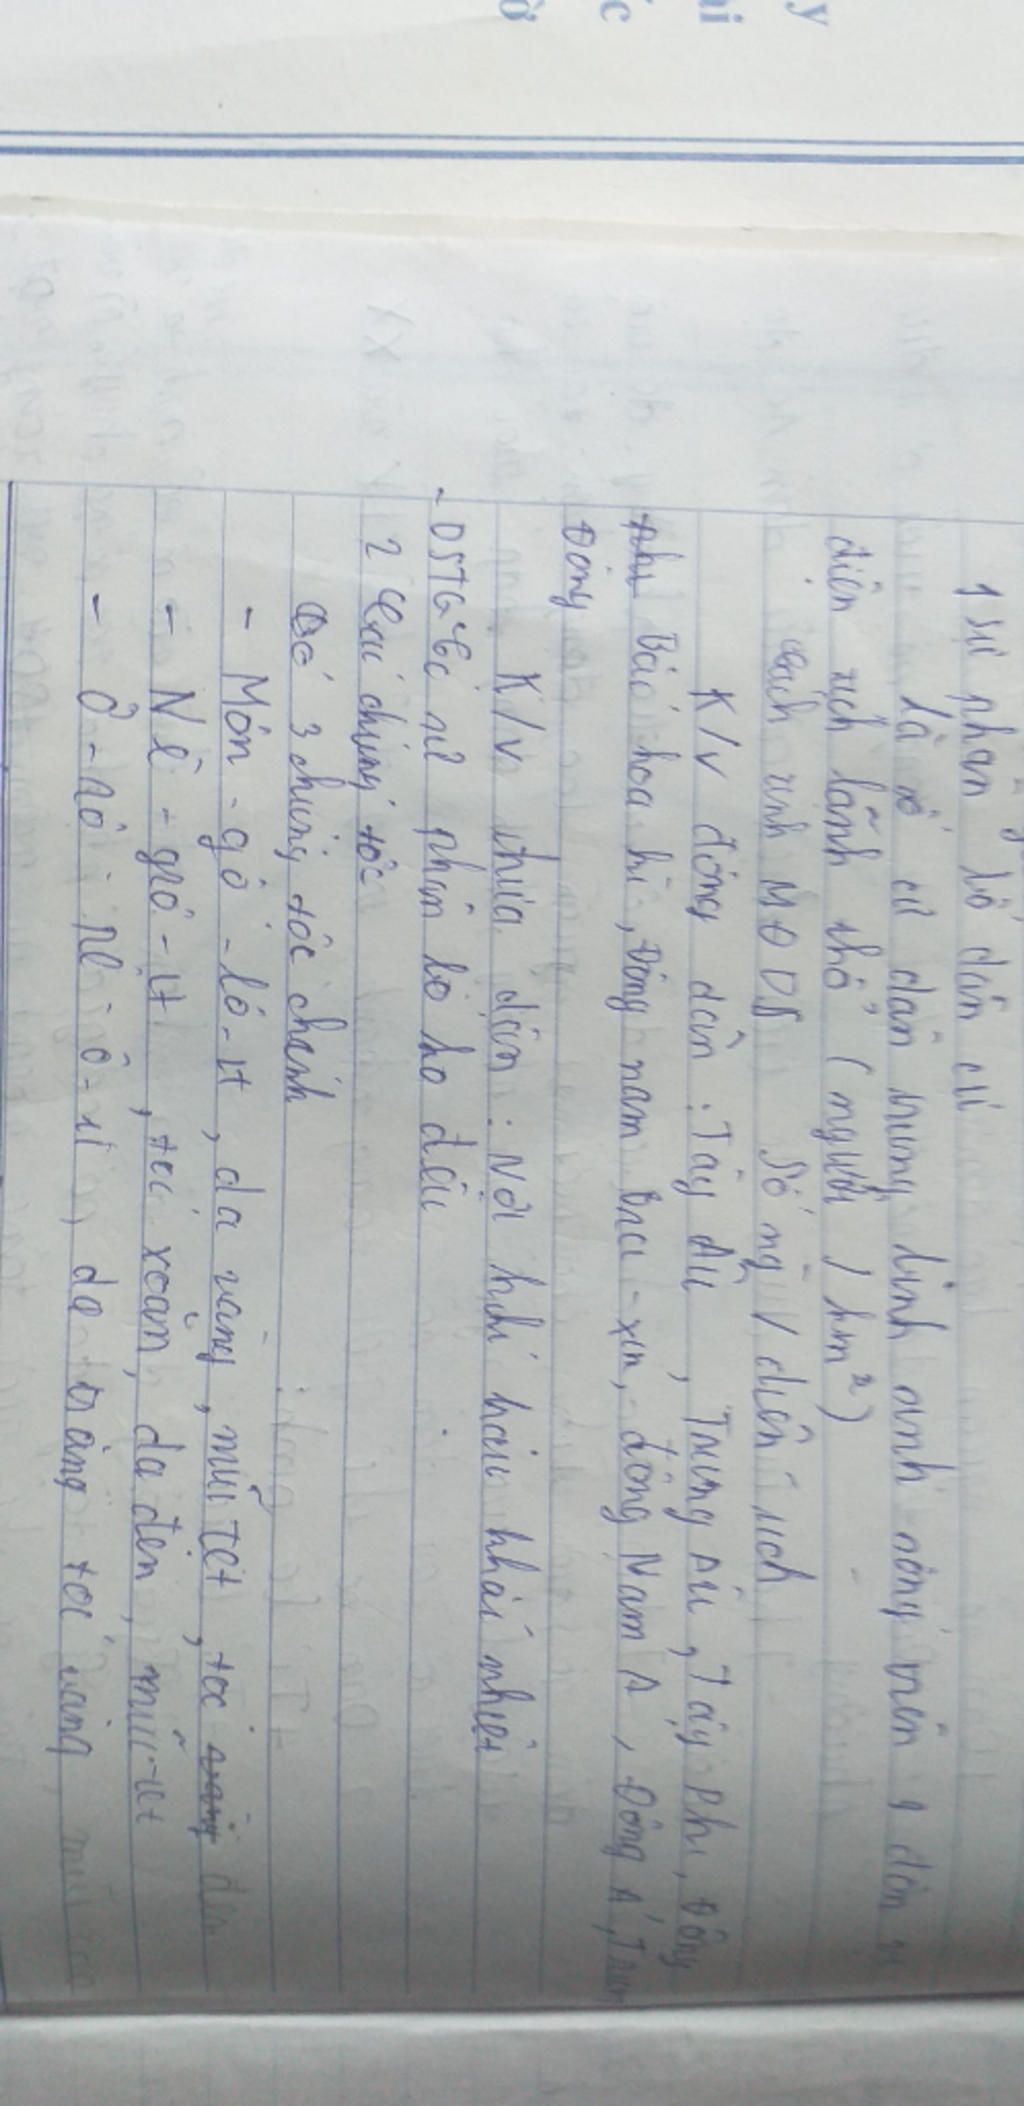 1 sự phân bố dân cư
là số cư dân trung bình sinh sống trên 1 đơn vị
diện tích lãnh thổ (người / km²)
cách tính MĐDS Số ng / diện tích
K/v đông dân : Tây Âu, Trung Âu, Tây Phi, Đông
Bắc hoa kì, Đông nam Bra-xin, đông Nam Á, Đông Á, Trung
Đông
K/v thưa dân : Nơi khí hậu khắc nhiệt
- DSTG có sự phân bố ko đều
2 Các chủng tộc
Có 3 chủng tộc chính
- Môn-gô-lô-it, da vàng, mũi tẹt, tóc đen
- Nê-grô-it, tóc xoăn, da đen, mũi
- Ơ-rô-pê-ô-it, da trắng tóc vàng